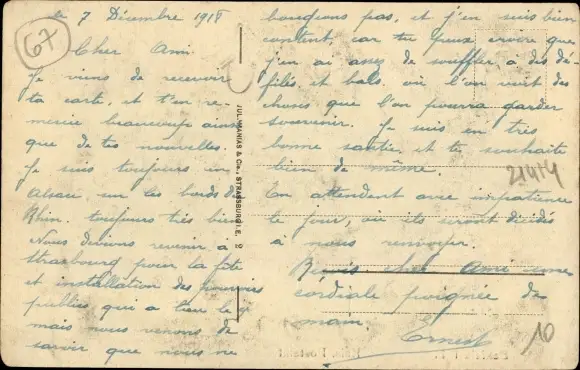 le 7 Décembre 1918
67
Cher Ami.
Je viens de recevoir
ta carte, et t'en re-
mercie beaucoup ainsi
que de tes nouvelles.
Je suis toujours en
Alsace, sur les bords du
Rhin. toujours très bien
Nous devions revenir à
Strasbourg pour la fête
et installation des pouvoirs
publics qui a lieu le 9
mais nous venons de
savoir que nous ne
JUL. MANIAS & Cie., STRASSBURG i. E. 2
bougeons pas, et j'en suis bien
content, car tu peux croire que
j'en ai assez de souffler a des dé-
filés et bals. où l'on voit des
choses que l'on pourra garder
souvenir. Je suis en très
bonne santée, et te souhaite
bien de même.
En attendant avec impatience
le jour, où ils seront décidés
à nous renvoyer.
Reçois cher Ami une
cordiale poignée de
main.
Ernest
21414
10